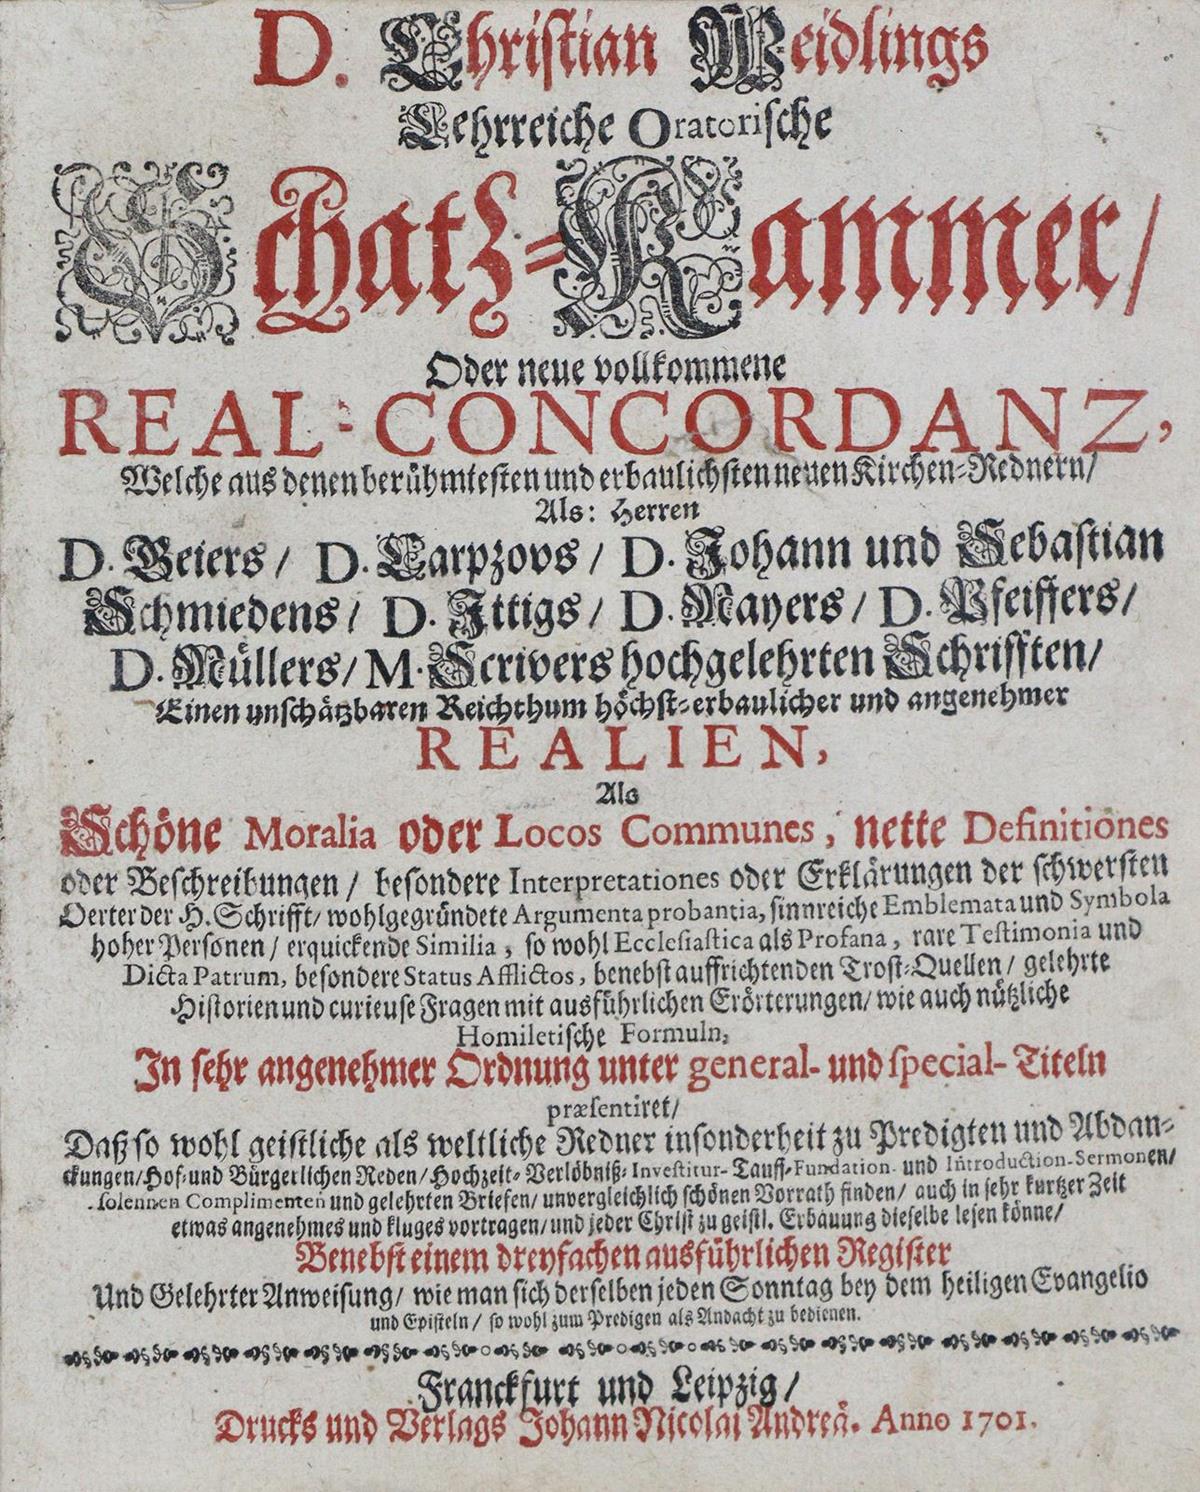 D. Christian Weidlings
Lehrreiche Oratorische
Schatz-Kammer/
Oder neue vollkommene
REAL-CONCORDANZ,
Welche aus denen berühmtesten und erbaulichsten neuen Kirchen-Rednern/
Als: Herren
D. Geiers/ D. Carpzovs/ D. Johann und Sebastian
Schmiedens/ D. Ittigs/ D. Mayers/ D. Pfeiffers/
D. Müllers/ M. Scrivers hochgelehrten Schrifften/
Einen unschätzbaren Reichthum höchst-erbaulicher und angenehmer
REALIEN,
Als
Schöne Moralia oder Locos Communes, nette Definitiones
oder Beschreibungen/ besondere Interpretationes oder Erklärungen der schwersten
Oerter der H. Schrifft/ wohlgegründete Argumenta probantia, sinnreiche Emblemata und Symbola
hoher Personen/ erquickende Similia, so wohl Ecclesiastica als Profana, rare Testimonia und
Dicta Patrum, besondere Status Afflictos, benebst auffrichtenden Trost-Quellen/ gelehrte
Historien und curieuse Fragen mit ausführlichen Erörterungen/ wie auch nützliche
Homiletische Formuln,
In sehr angenehmer Ordnung unter general- und special-Titeln
præsentiret/
Daß so wohl geistliche als weltliche Redner insonderheit zu Predigten und Abdan-
ckungen/ Hof- und Bürgerlichen Reden/ Hochzeit- Verlöbniß- Investitur- Tauff- Fundation- und Introduction-Sermonen/
solennen Complimenten und gelehrten Briefen/ unvergleichlich schönen Vorrath finden/ auch in sehr kurtzer Zeit
etwas angenehmes und kluges vortragen/ und jeder Christ zu geistl. Erbauung dieselbe lesen könne/
Benebst einem dreyfachen ausführlichen Register
Und Gelehrter Anweisung/ wie man sich derselben jeden Sonntag bey dem heiligen Evangelio
und Episteln/ so wohl zum Predigen als Andacht zu bedienen.
Franckfurt und Leipzig/
Drucks und Verlags Johann Nicolai Andreä. Anno 1701.